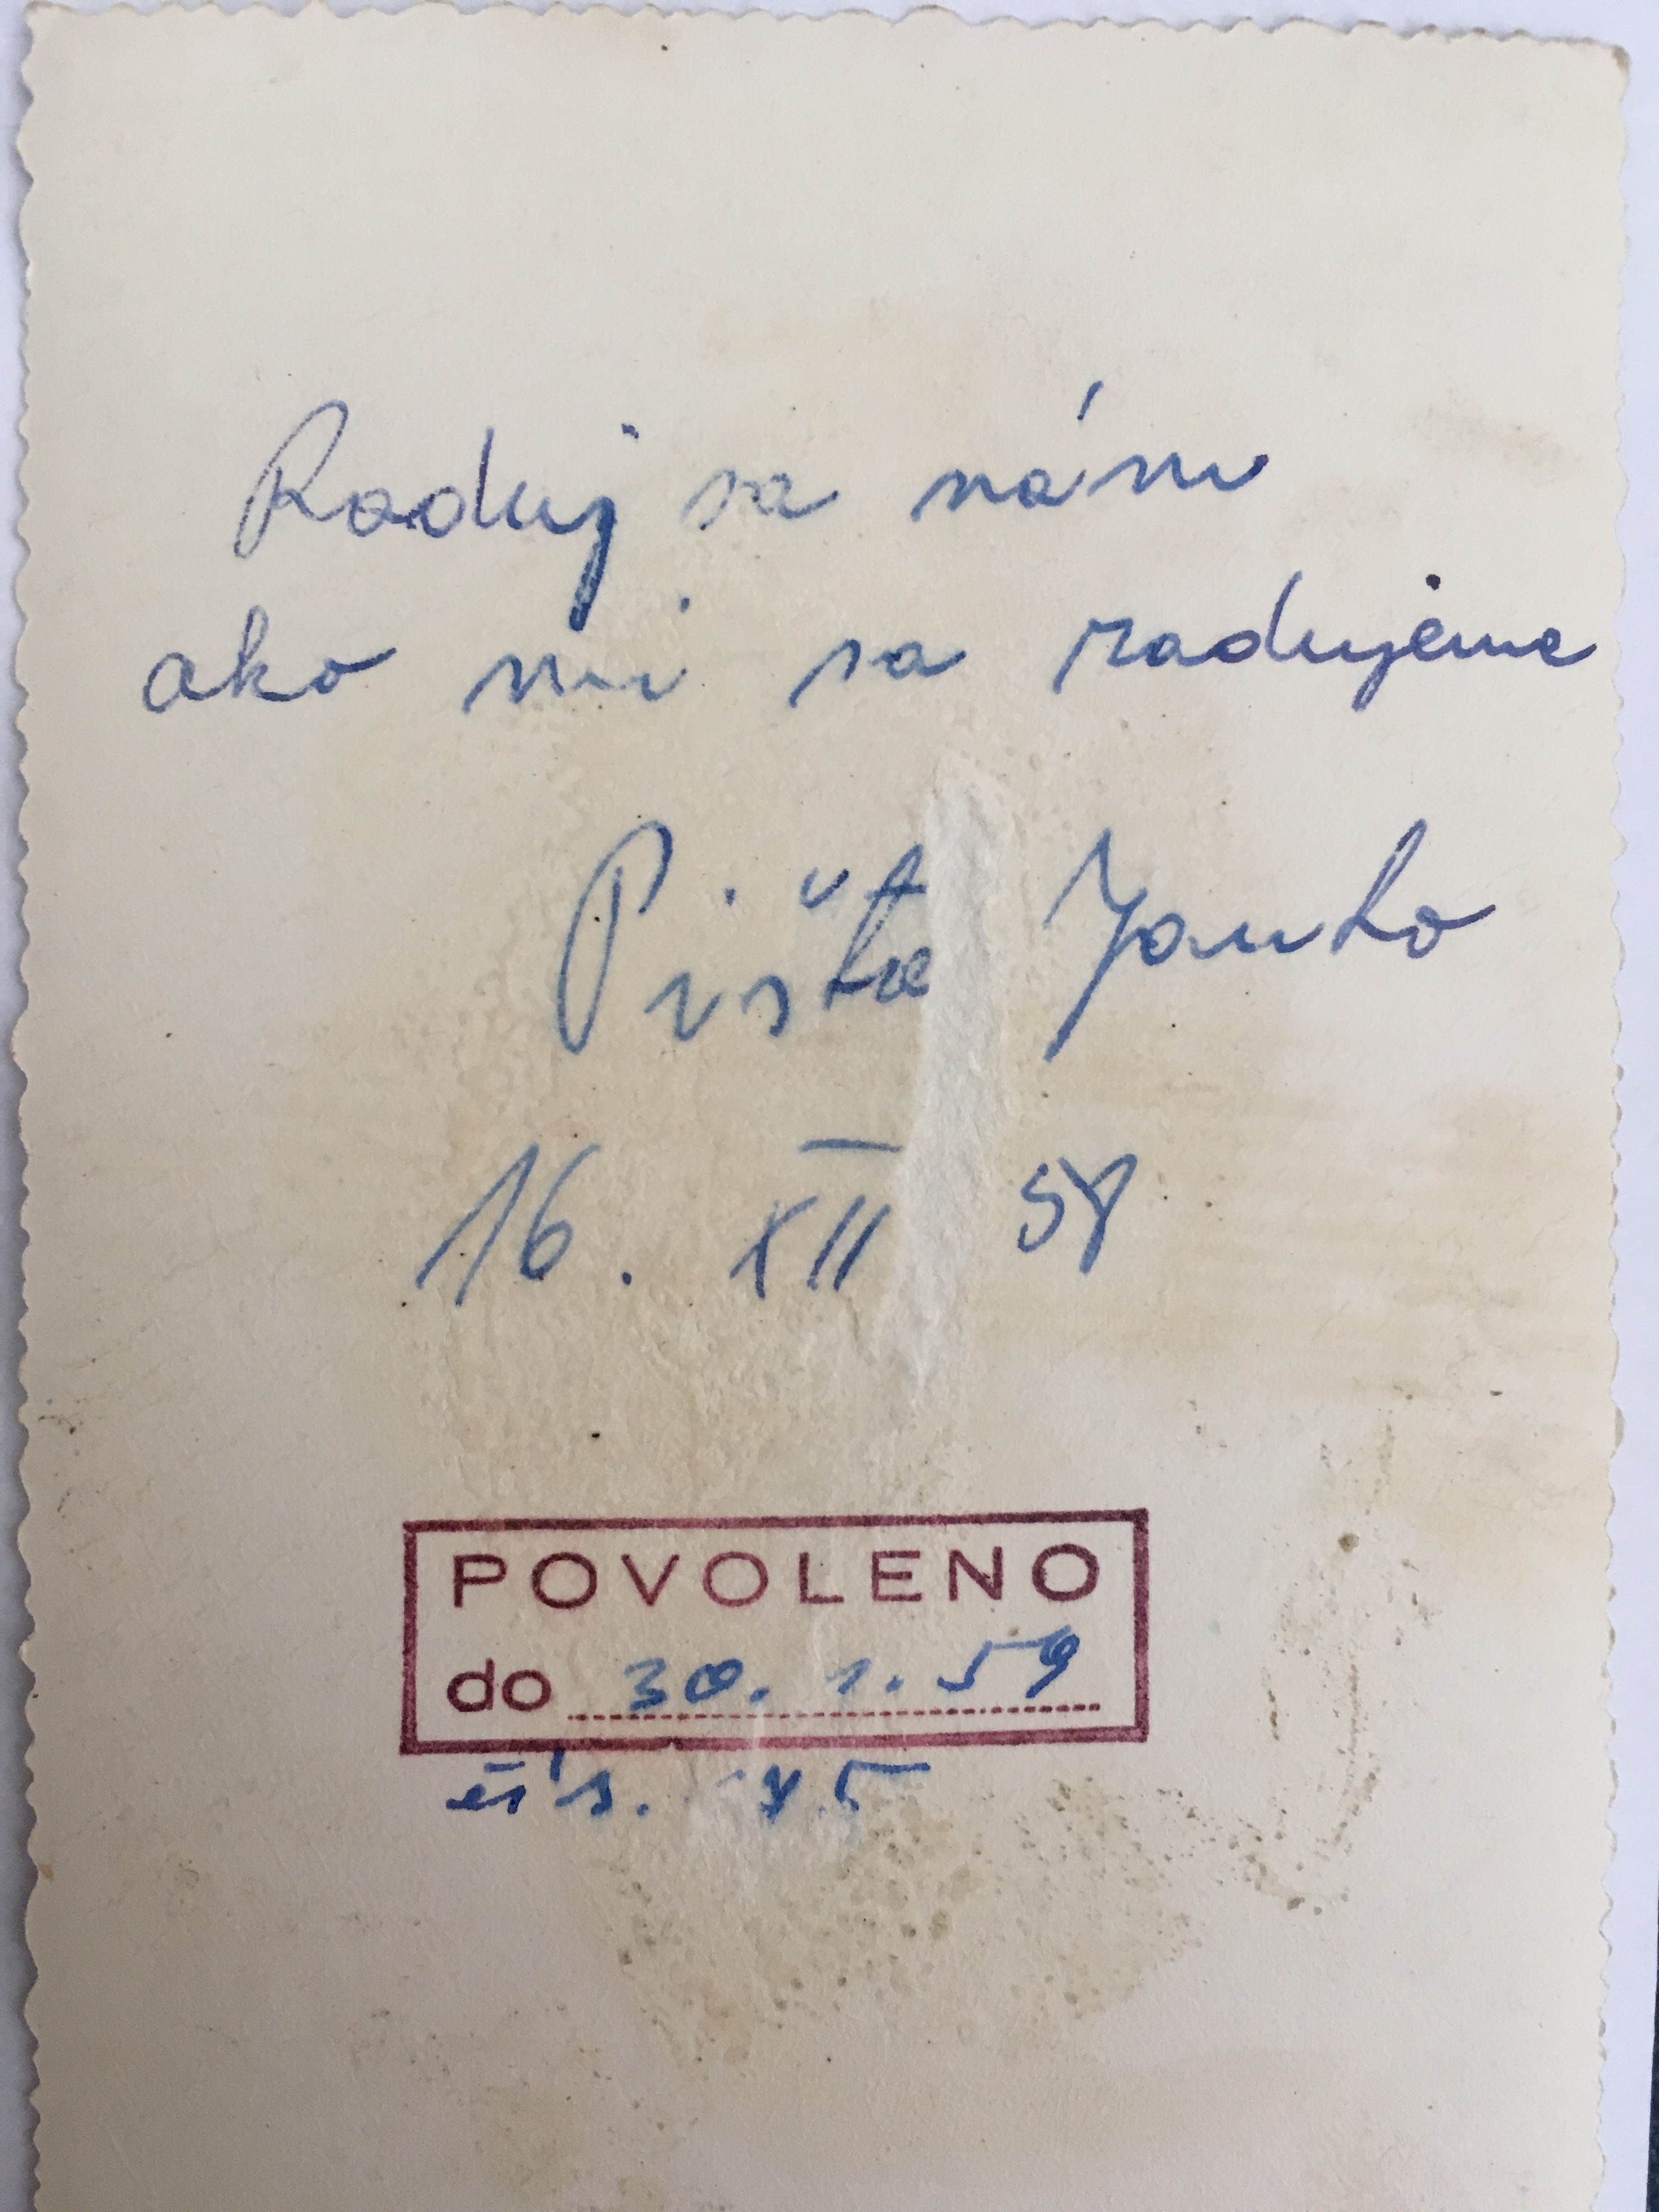 Raduj sa nám
ako mi sa radujeme
Pišta Janko
16. XII 58
POVOLENO
do 30. 1. 59
čís. 75